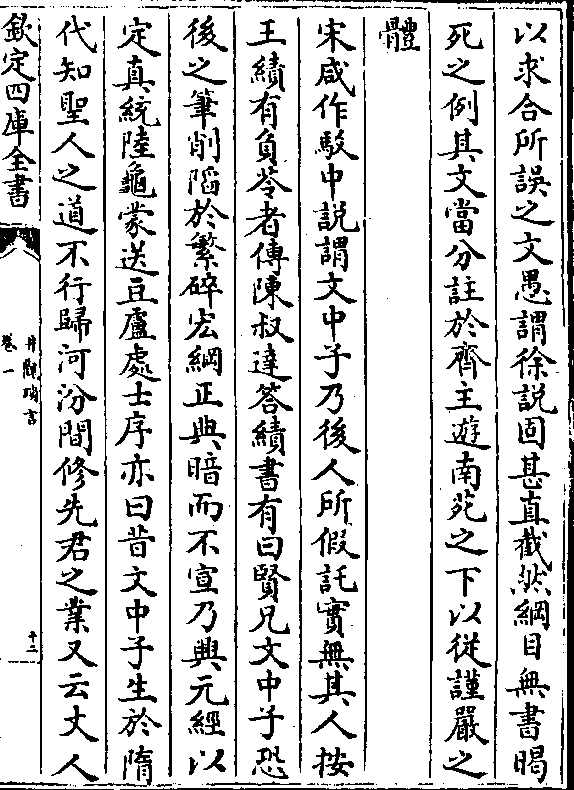 以求合所誤之文愚謂徐說固甚直截然綱目無書暍
死之例其文當分註於齊主遊南苑之下以從謹嚴之
體
宋咸作駁中說謂文中子乃後人所假託實無其人按
王績有負苓者傳陳叔達答績書有曰賢兄文中子恐
後之筆削陷於繁碎宏綱正典暗而不宣乃興元經以
定真統陸龜蒙送豆盧處士序亦曰昔文中子生於隋
代知聖人之道不行歸河汾間修先君之業又云丈人
欽定四庫全書
井觀瑣言
卷一
十二